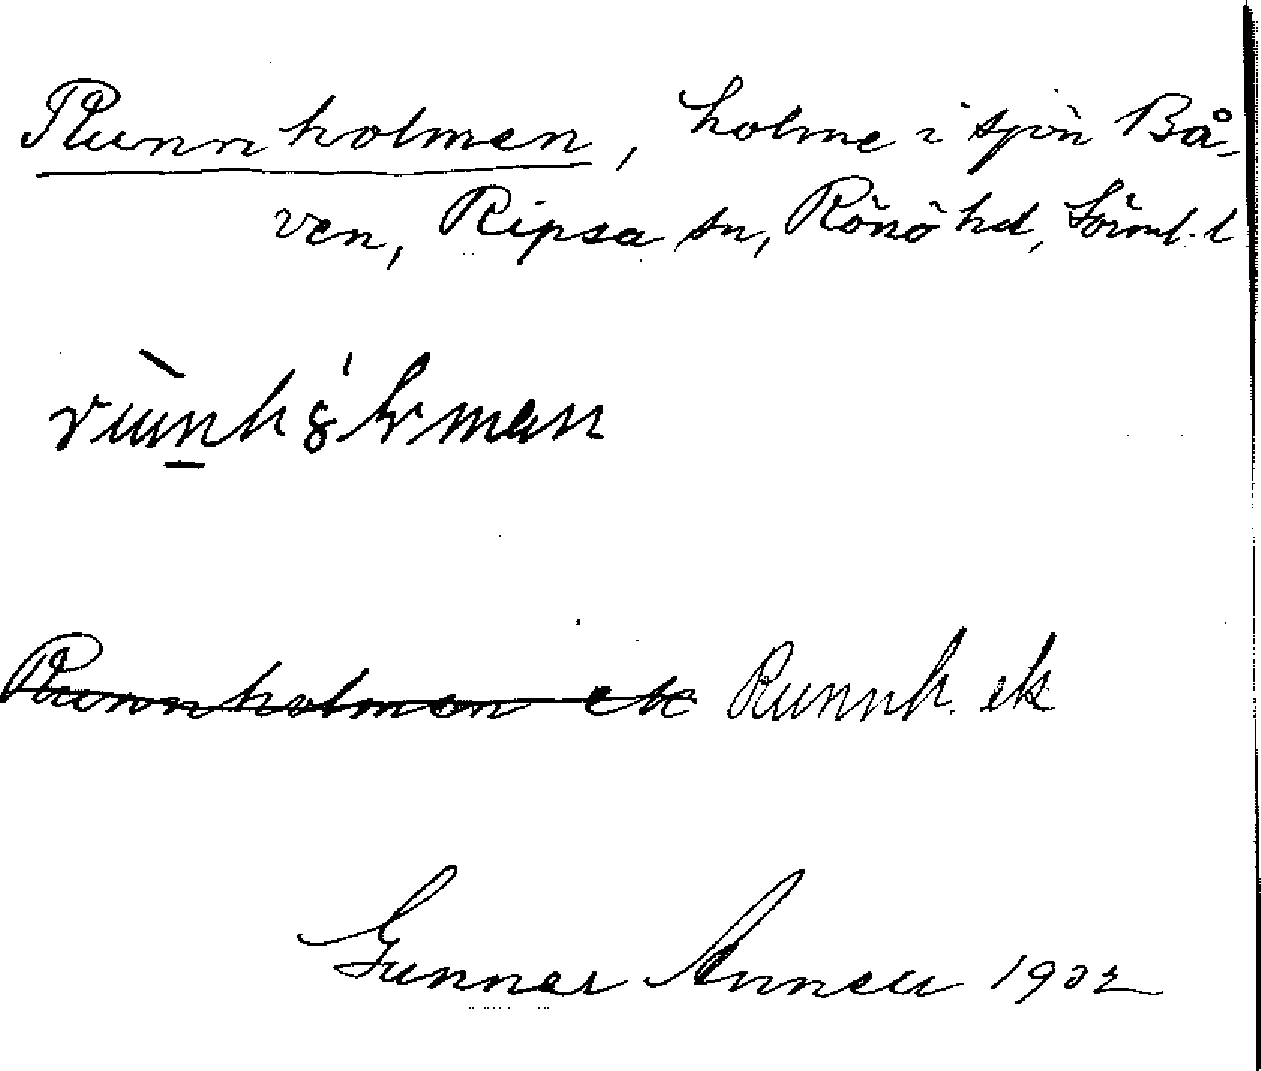 Runnholmen, holme i sjön Bå-
ven, Ripsa sn, Rönö hd, Söml. l
Runnholmen ek Runnh. ek
Gunnar Annell 1902